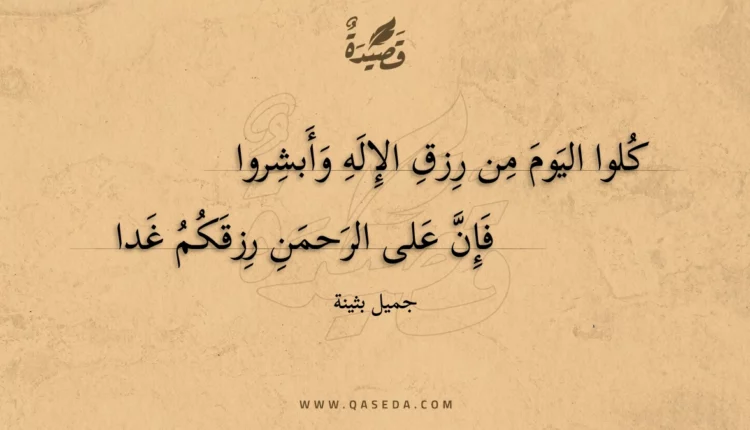 قَصِيدَةٌ
كُلوا اليَومَ مِن رِزقِ الإِلَهِ وَأَبشِروا
فَإِنَّ عَلى الرَحمَنِ رِزقَكُمُ غَدا
جميل بثينة
WWW.QASEDA.COM